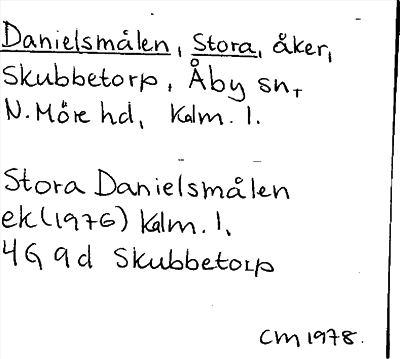 Danielsmålen, Stora, åker,
Skubbetorp, Åby sn,
N. Möre hd, Kalm. l.
Stora Danielsmålen
ek (1976) Kalm. l.
4G 9d Skubbetorp
CM 1978.